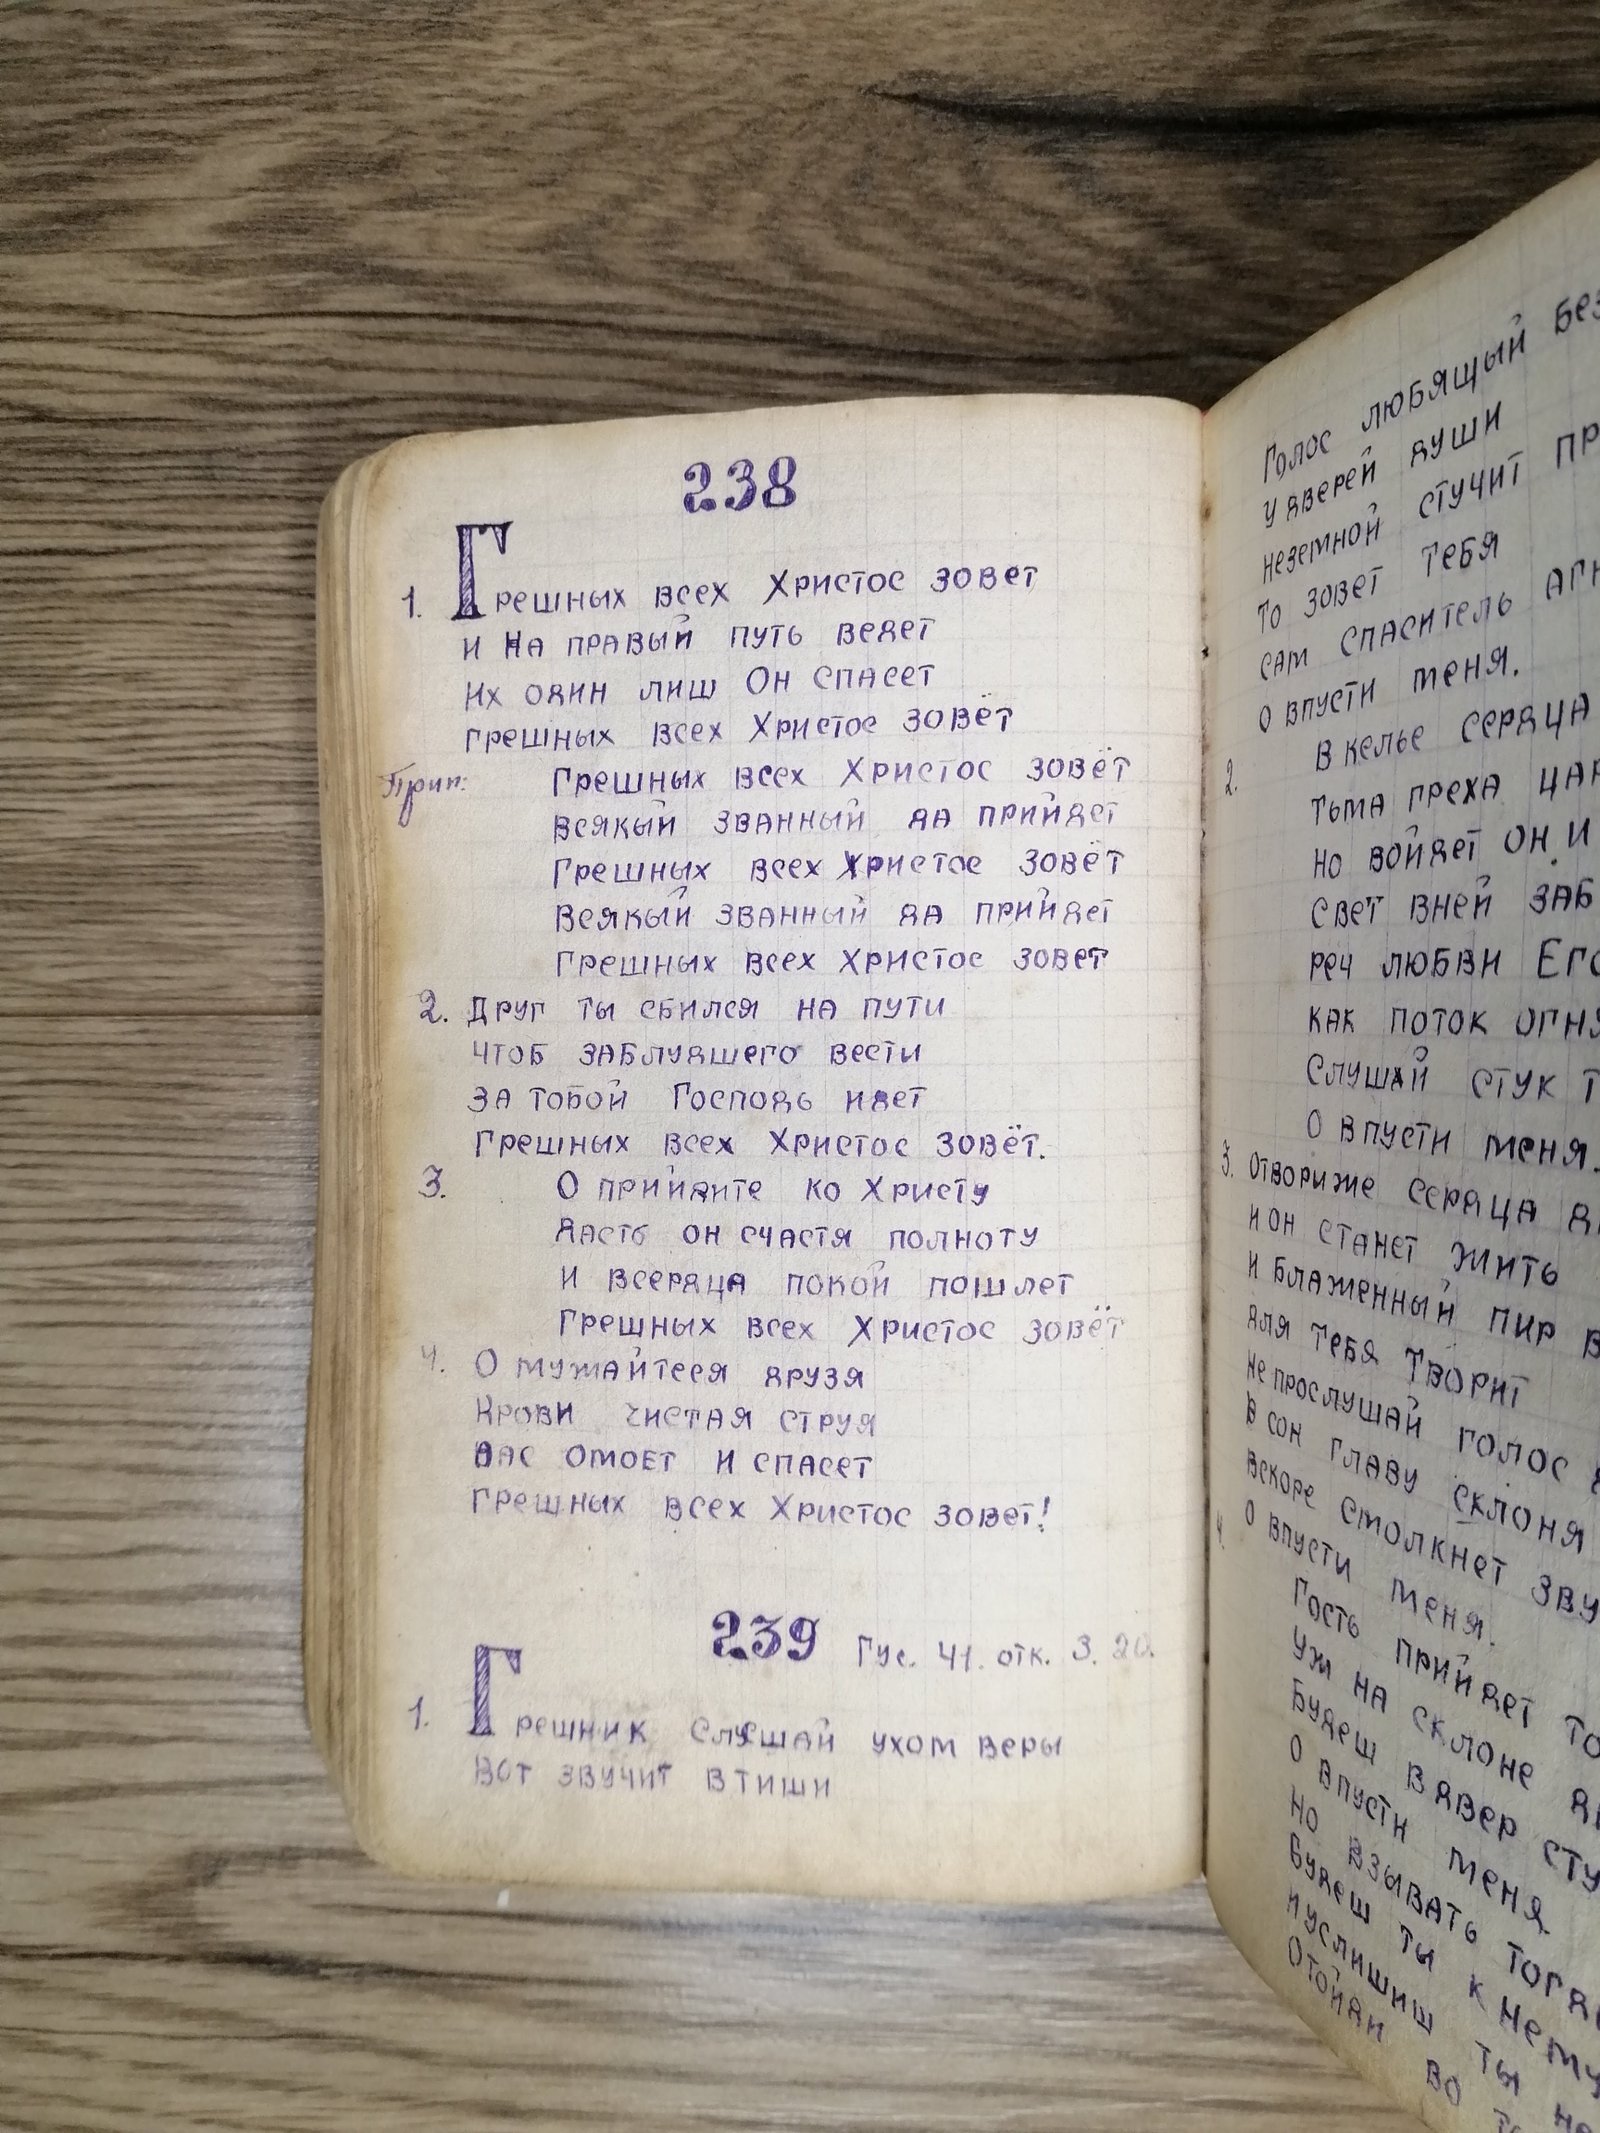 238
1. Грешных всех Христос зовет
и на правый путь ведет
Их один лиш Он спасет
грешных всех Христос зовёт
Прип: Грешных всех Христос зовёт
Всякый званный да прийдет
Грешных всех Христос зовёт
Всякый званный да прийдет
Грешных всех Христос зовет
2. Друг ты сбился на пути
чтоб заблудшего вести
за тобой Господь идет
Грешных всех Христос зовёт.
3. О прийдите ко Христу
дасть он счастя полноту
И всердца покой пошлет
Грешных всех Христос зовёт
4. О мужайтеся друзя
Крови чистая струя
Вас омоет и спасет
Грешных всех Христос зовет!
239 Гус. 41. отк. 3. 20.
1. Грешник слушай ухом веры
вот звучит втиши
Голос любящый
у дверей души
неземной стучит
То зовет тебя
сам спаситель
о впусти меня.
2. В келье сердца
тьма греха
но войдет он и
свет вней
реч любви
как поток
Слушай стук
О впусти меня.
3. Отвориже сердца
и он станет жить
и блаженный пир
для тебя творит
не прослушай голос
в сон главу склоня
вскоре смолкнет
о впусти меня.
4. Гость прийдет
уж на склоне
Будеш вдвер
О впусти меня
Но взывать
Будеш ты к
и услишиш ты
Отойди во